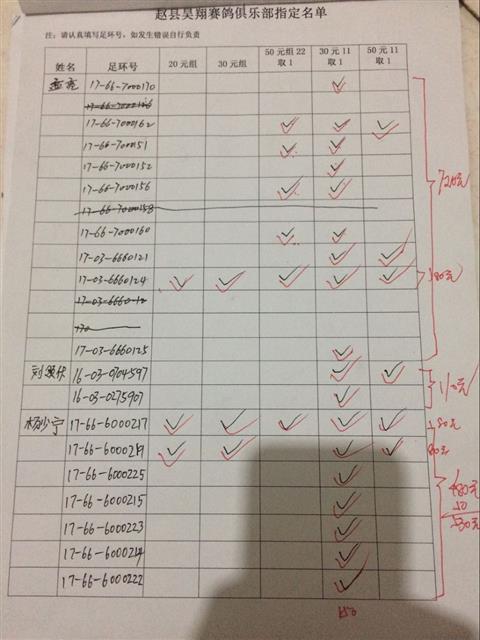 赵县昊翔赛鸽俱乐部指定名单
注：请认真填写足环号，如发生错误自行负责
姓名 足环号 20元组 30元组 50元组22取1 30元11取1 50元11取1
17-66-7000170 ✓
17-66-7000162 ✓ ✓ ✓
17-66-7000151 ✓ ✓
17-66-7000152 ✓
17-66-7000156 ✓ ✓
17-66-7000158
17-66-7000160 ✓ ✓
17-03-6660121 ✓ ✓
17-03-6660124 ✓ ✓ ✓ ✓ ✓ 180元
17-03-6660125 ✓
16-03-0704597 ✓ ✓
16-03-0275907 ✓
杨妙宁 17-66-6000217 ✓ ✓ ✓ ✓ ✓
17-66-6000219 ✓ ✓ ✓ ✓
17-66-6000225 ✓
17-66-6000215 ✓
17-66-6000223 ✓
17-66-6000214 ✓
17-66-6000222 ✓
480元
50
530元